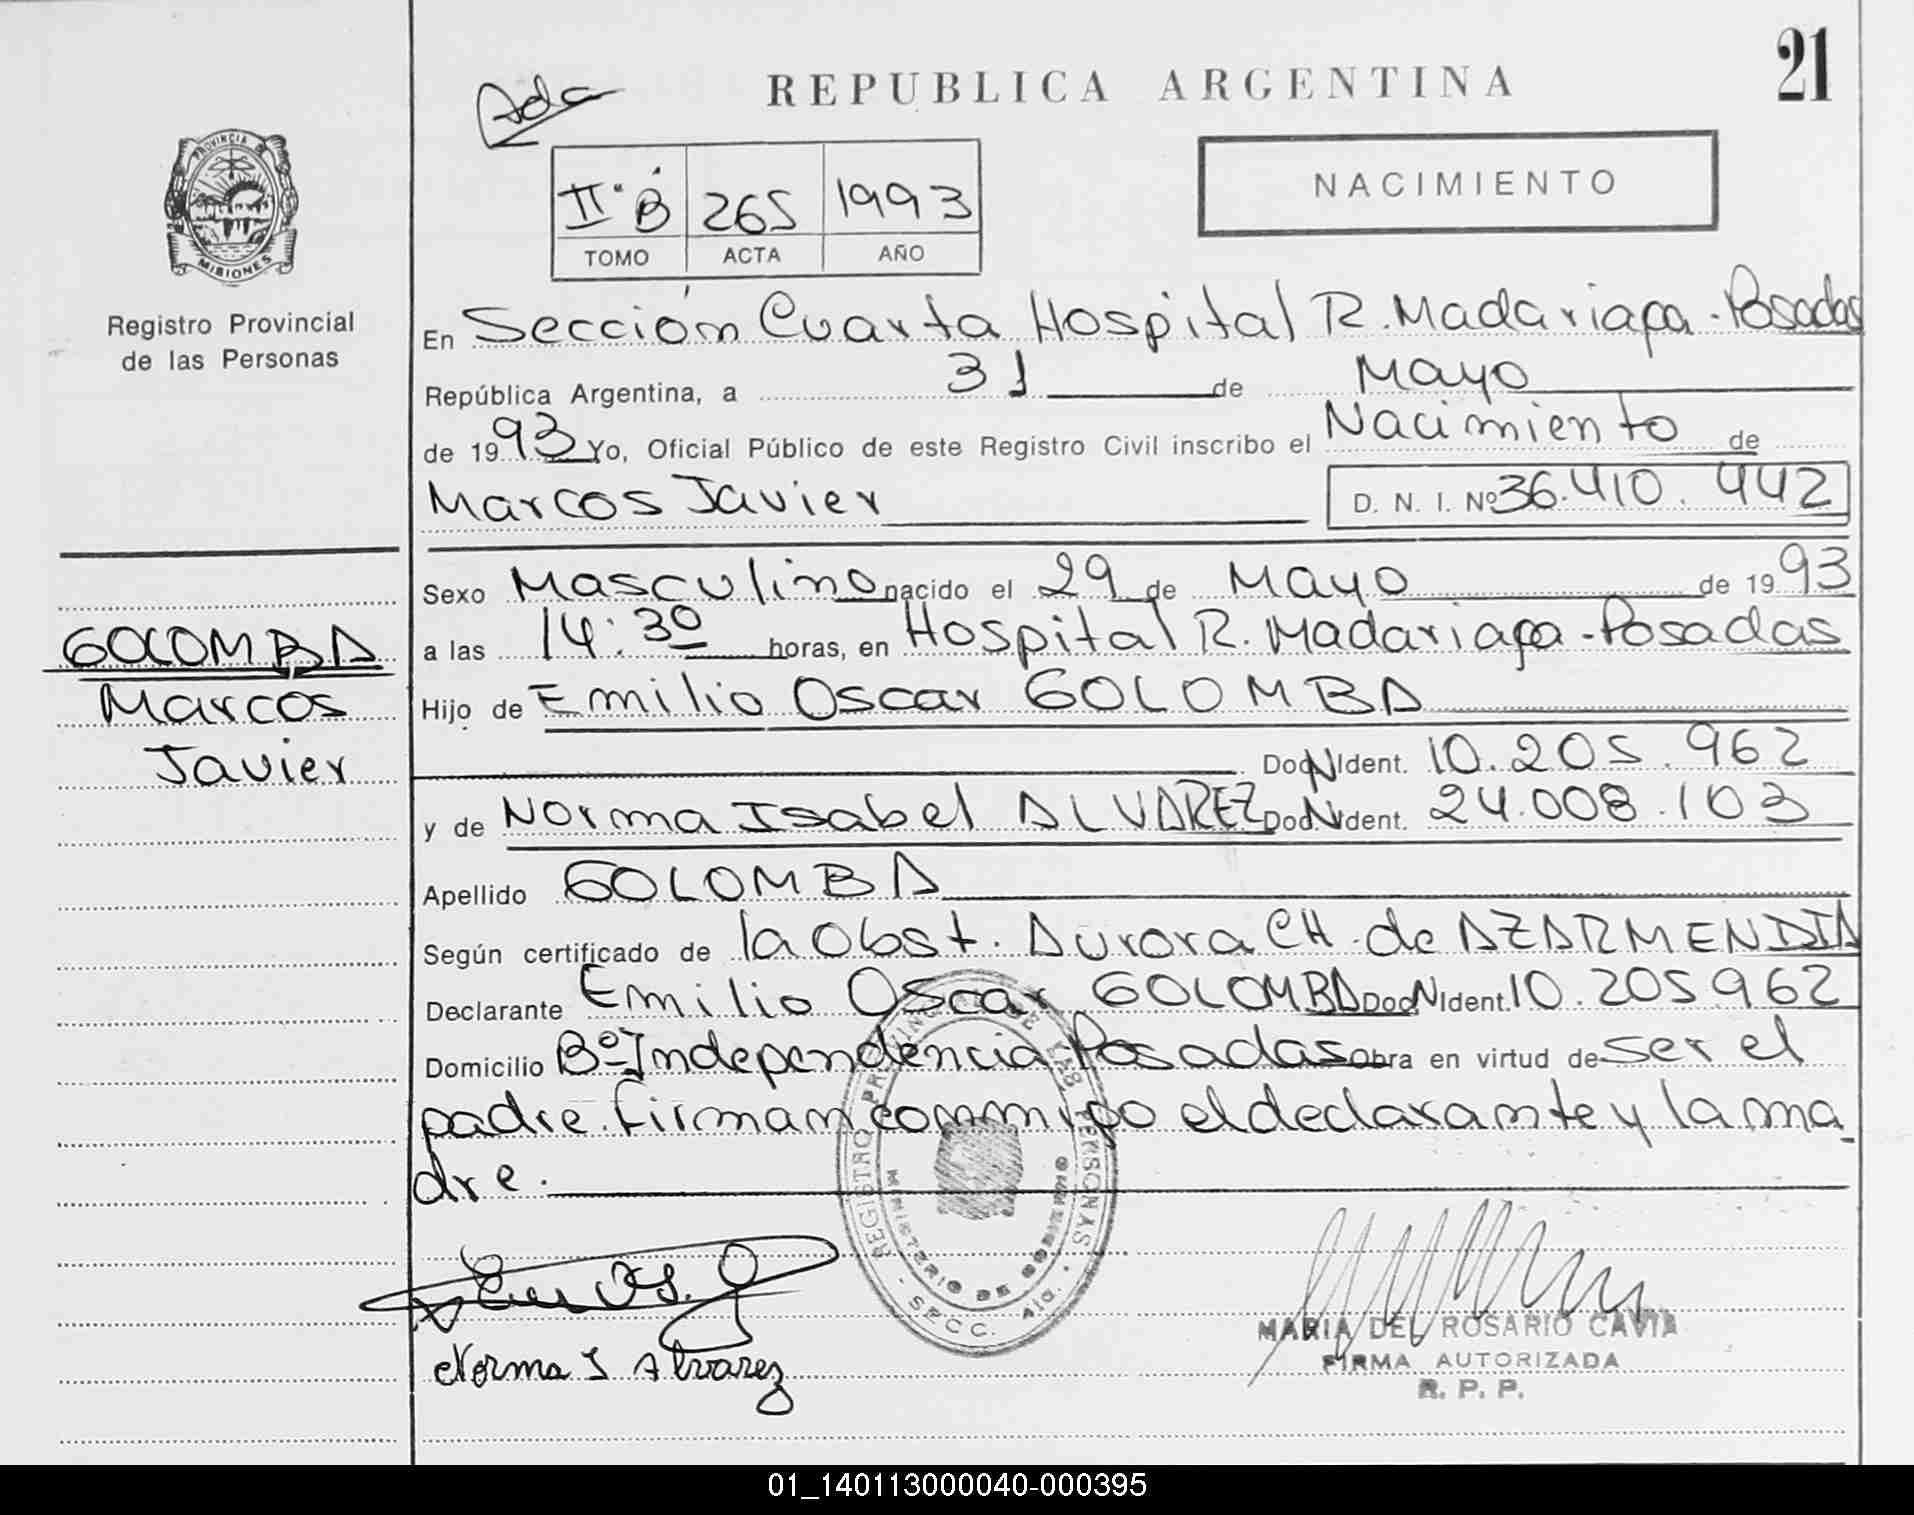 21
REPUBLICA ARGENTINA
Ada
PROVINCIA DE
MISIONES
Registro Provincial
de las Personas
NACIMIENTO
II° B 265 1993
TOMO ACTA AÑO
En Sección Cuarta Hospital R. Madariaga - Posadas
República Argentina, a 31 de Mayo
de 1993 Yo, Oficial Público de este Registro Civil inscribo el Nacimiento de
Marcos Javier D. N. I. Nº 36.410.442
Sexo Masculino nacido el 29 de Mayo de 1993
a las 14:30 horas, en Hospital R. Madariaga - Posadas
GOLOMBA
Marcos
Javier
Hijo de Emilio Oscar GOLOMBA
Doc N Ident. 10.205.962
y de Norma Isabel ALVAREZ Doc. N Ident. 24.008.103
Apellido GOLOMBA
Según certificado de la Obst. Aurora CH. de AZARMENDIA
Declarante Emilio Oscar GOLOMBA Doc N Ident. 10.205962
Domicilio Bº Independencia Posadas Obra en virtud de ser el
padre. Firman conmigo el declarante y la ma
dre.
REGISTRO PROVINCIAL DE LAS PERSONAS
MINISTERIO DE GOBIERNO
SECC. 4ta.
Norma I Alvarez
MARIA DEL ROSARIO CAVIA
FIRMA AUTORIZADA
R. P. P.
01_140113000040-000395